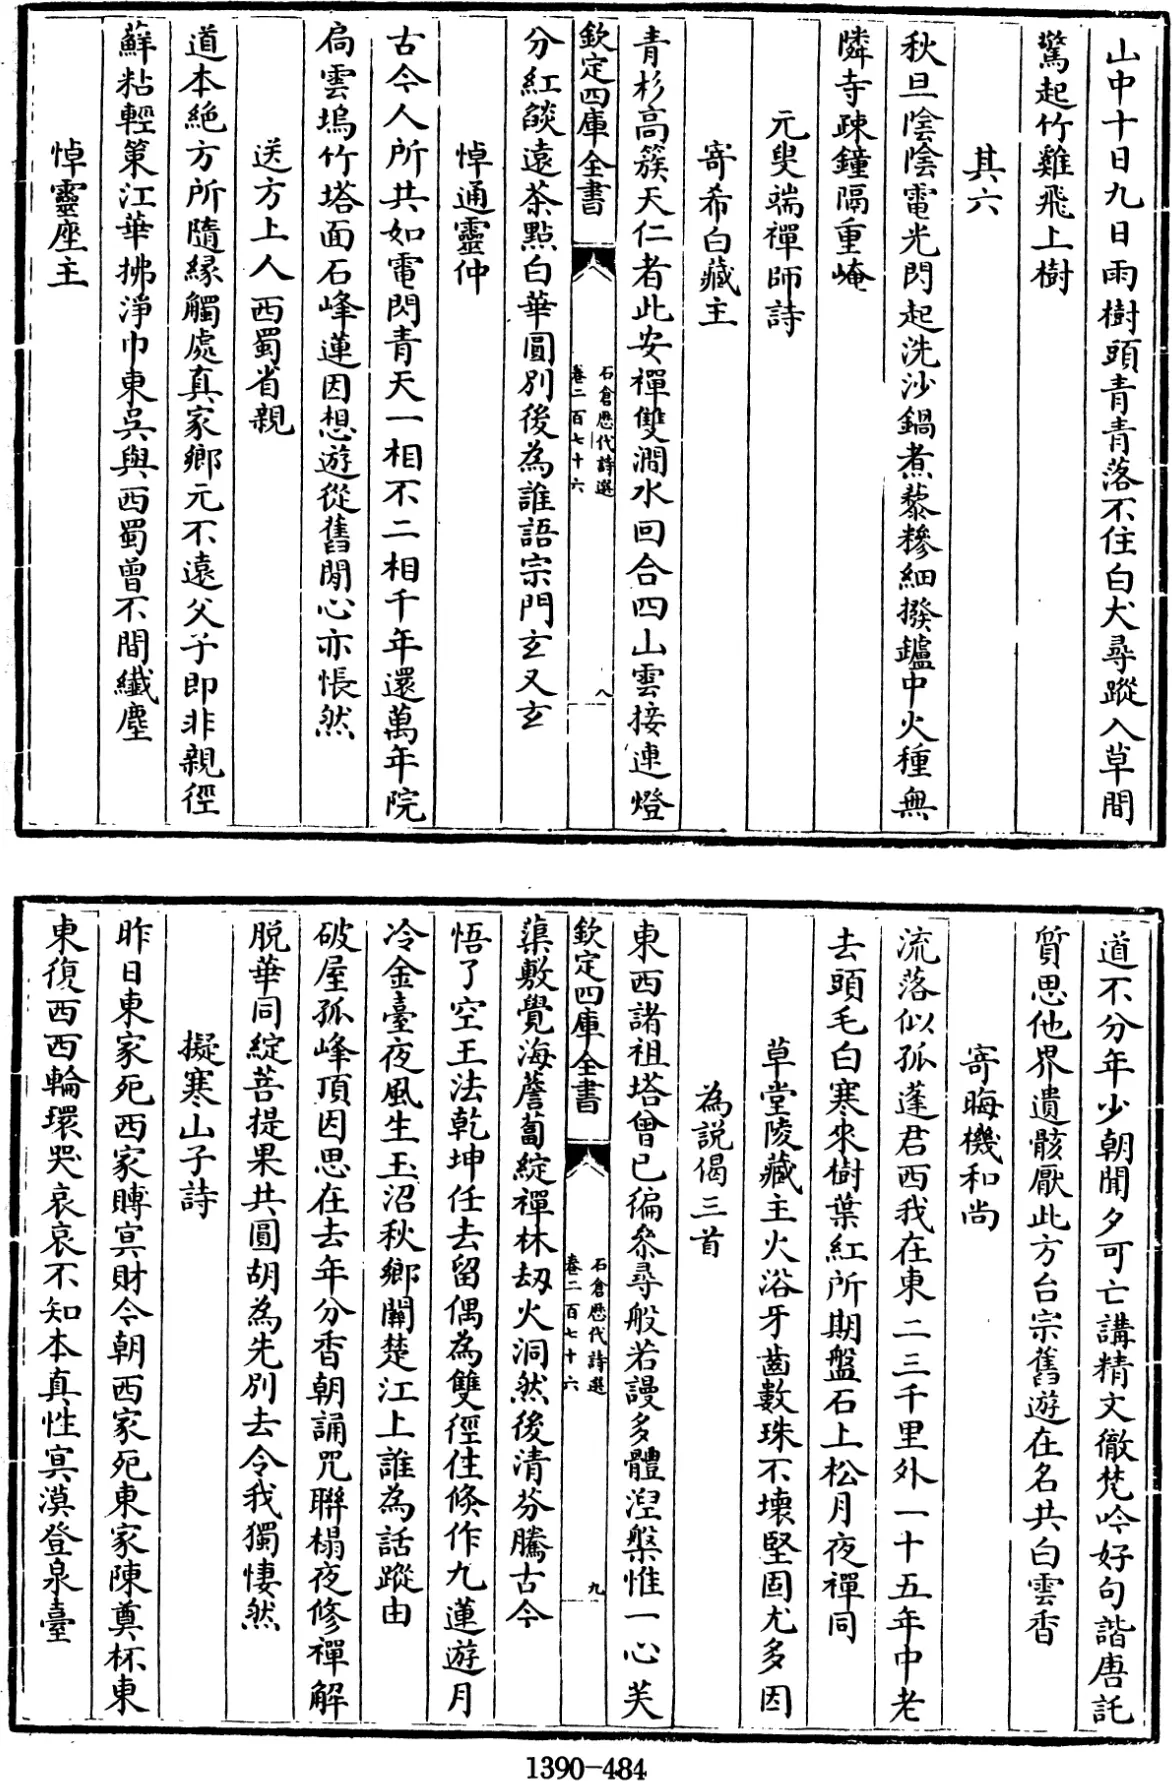 山中十日九日雨樹頭青青落不住白犬尋蹤入草間
驚起竹雞飛上樹
其六
秋旦陰陰電光閃起洗沙鍋煮藜糝細撥鑪中火種無
隣寺疎鐘隔重崦
元叟端禪師詩
寄希白藏主
青杉高簇天仁者此安禪雙澗水回合四山雲接連燈
欽定四庫全書
石倉歷代詩選
卷二百七十六
八
分紅燄遠茶點白華圓別後為誰語宗門玄又玄
悼通靈仲
古今人所共如電閃青天一相不二相千年還萬年院
扃雲塢竹塔面石峰蓮因想遊從舊閒心亦悵然
送方上人西蜀省親
道本絶方所隨緣觸處真家鄉元不遠父子即非親徑
蘚粘輕策江華拂淨巾東吳與西蜀曾不間纖塵
悼靈座主
道不分年少朝聞夕可亡講精文徹梵吟好句諧唐託
質思他界遺骸厭此方台宗舊遊在名共白雲香
寄晦機和尚
流落似孤蓬君西我在東二三千里外一十五年中老
去頭毛白寒來樹葉紅所期盤石上松月夜禪同
草堂陵藏主火浴牙齒數珠不壞堅固尤多因
為説偈三首
東西諸祖塔曾已徧叅尋般若謾多體湼槃惟一心芙
欽定四庫全書
石倉歷代詩選
卷二百七十六
九
蕖敷覺海薝蔔綻禪林劫火洞然後清芬騰古今
悟了空王法乾坤任去留偶為雙徑住倏作九蓮遊月
冷金臺夜風生玉沼秋鄉關楚江上誰為話蹤由
破屋孤峰頂因思在去年分香朝誦咒聯榻夜修禪解
脱華同綻菩提果共圓胡為先別去令我獨悽然
擬寒山子詩
昨日東家死西家賻冥財今朝西家死東家陳奠杯東
東復西西輪環哭哀哀不知本真性冥漠登泉臺
1390-484